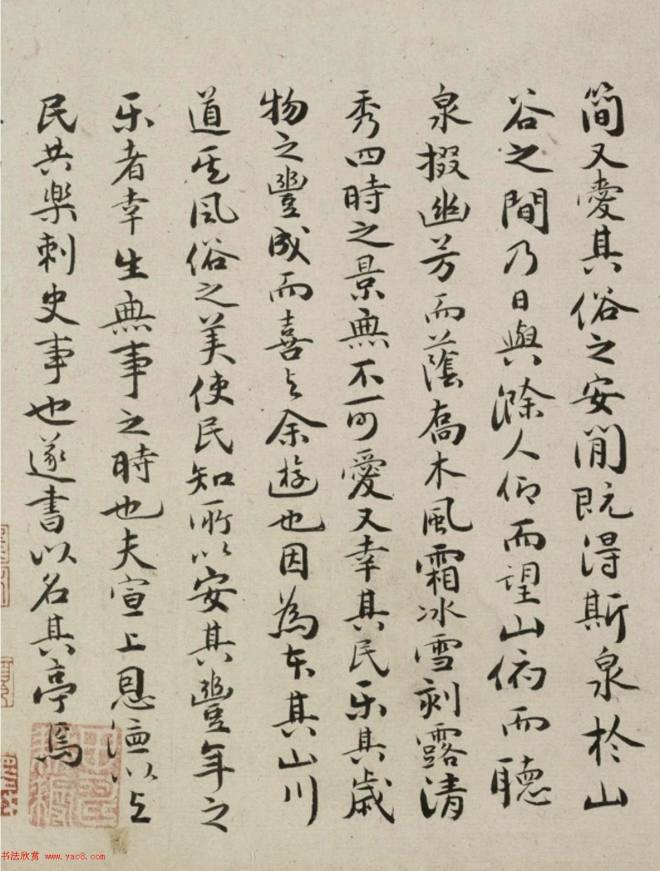 簡又愛其俗之安閒既得斯泉於山
谷之間乃日與滁人仰而望山俯而聽
泉掇幽芳而蔭喬木風霜冰雪刻露清
秀四時之景無不可愛又幸其民乐其歲
物之豐成而喜与余遊也因為本其山川
道其風俗之美使民知所以安其豐年之
乐者幸生無事之時也夫宣上恩德以与
民共樂刺史事也遂書以名其亭焉
书法欣赏 www.yac8.com